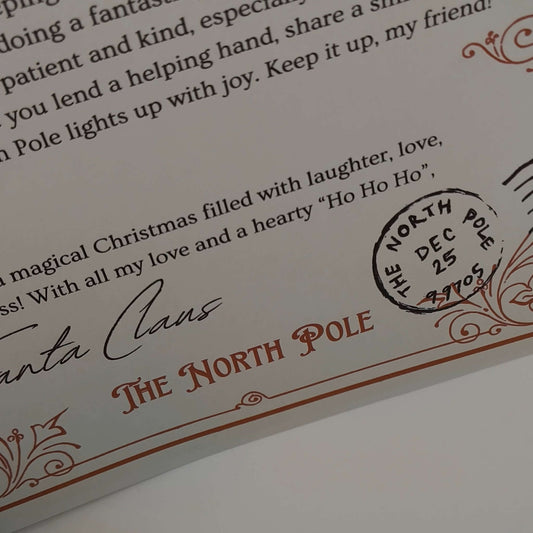 doing a fantas
patient and kind, especially
you lend a helping hand, share a
Pole lights up with joy. Keep it up, my friend!
magical Christmas filled with laughter, love,
With all my love and a hearty “Ho Ho Ho”,
Santa Claus
THE NORTH POLE
THE NORTH POLE
DEC
25
99705